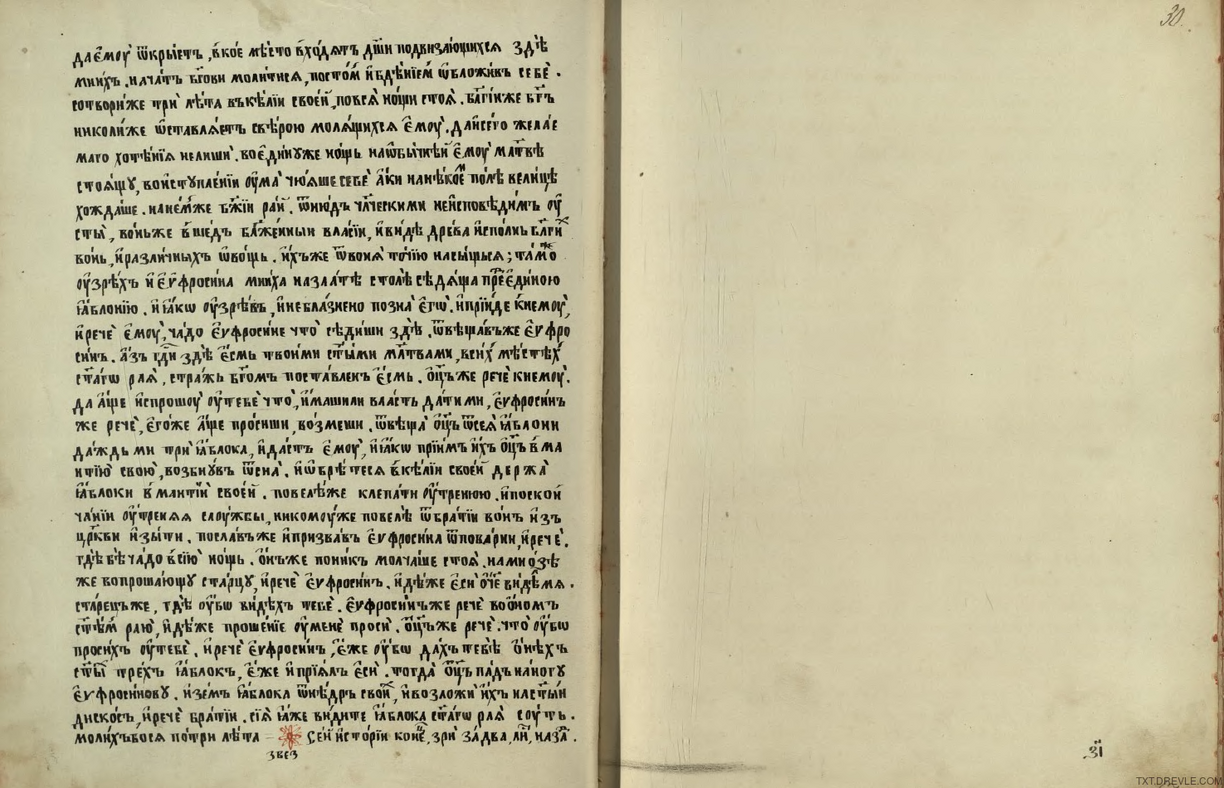 да є҆моу̀ ѿкрыетъ, в кое мѣсто входѧтъ дш҃и подвизаю́щихсѧ здѣ̀
мнихъ. начатъ бг҃ови молитисѧ, посто́м и҆ бдѣнїем ѡ҆бложивъ себѐ.
сотвори́же трѝ лѣта въ кѣлїи своей, по всѧ̀ нощи стоѧ̀. бл҃гі́иже бг҃ъ
николиже ѡ҆ставлѧетъ с вѣрою молѧщихсѧ є҆моу̀. да и҆ сего желае
маго хотѣнїѧ не лиши̏. во є҆ди́нꙋже нощь на ѡ҆бычнѣй є҆моу̀ мл҃твѣ
стоѧ́щꙋ, во и҆ступленїи оу҆ма̀ чюѧше себѐ а҆ки на нѣкоемъ полѣ велицѣ
хождаше. на немже бж҃їи рай. ѿнюдъ чл҃ческими не и҆сповѣдимъ оу҆
сты̀, во ньже вшедъ бл҃женныи власїи, и҆ видѣ древа и҆сполнь бл҃гихъ
вонь, и҆ различныхъ ѡ҆вощь. и҆хъже ѿ воня точїю насыщьсѧ; та́мо
оу҆зрѣхъ и҆ є҆ѵфросина мниха на златѣ столѣ сѣдѧща пре́ єдиною
ꙗ҆блонїю. и҆ ꙗ҆кѡ оу҆зрѣвъ, и҆ не блазнено позна̀ є҆гѡ̀. и҆ прїиде к немоу̀,
и҆ речѐ є҆моу̀, чадо є҆ѵфросине что̀ сѣдиши здѣ̀. ѿвѣщавъже є҆ѵфро
синъ. а҆зъ гд҃и здѣ̀ є҆смь твоими ст҃ыми мл҃твами, в сихъ мѣстѣхъ
ст҃а́гѡ раѧ̀, стражь бг҃омъ поставленъ є҆смь. ѻ҆ц҃ъже речѐ к немоу̀.
да а҆ще и҆спрошоу̀ оу҆ тебѐ что̀, и҆машили власть дати ми, є҆ѵфроси́нъ
же речѐ, є҆гоже а҆ще просиши, возмеши. ѿвѣща̀ ѻ҆ц҃ъ ѿ сеѧ̀ ꙗ҆блони
даждь ми трѝ ꙗ҆блока, и҆ дастъ є҆моу̀, и҆ ꙗ҆кѡ прїимъ и҆хъ ѻ҆ц҃ъ в ма
нтїю̀ свою̀, возбнꙋвъ ѿ сна̀. и҆ ѡ҆брѣтесѧ в кѣлїи своей держа̀
ꙗ҆блоки в мантїи своей. повелѣже клепати оу҆тренюю. и҆ по скон
чанїи оу҆тренѧѧ слоужбы, никомоуже повелѣ ѿ братїи вонъ и҆зъ
цр҃кви и҆зы́ти. пославъже и҆ призвавъ є҆ѵфросина ѿ поварни, и҆ речѐ.
гдѣ бѣ чадо в сїю̀ нощь. ѻ҆нъже поникъ молчаше стоѧ̀. на мнозѣ
же вопрошаю́щꙋ старцꙋ, и҆ речѐ є҆ѵфросинъ. и҆дѣже є҆сѝ ѻ҆ч҃е видѣ мѧ.
старецъже, гдѣ̀ оу҆бо видѣхъ тебѐ. є҆ѵфросинъже речѐ во ѻ҆номъ
ст҃ѣмъ раю̀, и҆дѣже прошенїе оу҆ мене просѝ. ѻ҆ц҃ъже речѐ. что̀ оу҆бѡ
просихъ оу҆ тебѐ, и҆ речѐ є҆ѵфросинъ, є҆же оу҆бѡ дахъ тебѣ ѻ҆нѣхъ
ст҃ы́ трехъ ꙗ҆блокъ, є҆же и҆ прїѧлъ є҆сѝ. тогда̀ ѻ҆ц҃ъ падъ на ногꙋ
є҆ѵфросиновꙋ. и҆земъ ꙗ҆блока ѿ нѣдръ своихъ, и҆ возложи и҆хъ на ст҃ы́и
дискосъ, и҆ речѐ братїи. сїѧ ꙗ҆же видите ꙗ҆блока ст҃а́гѡ раѧ̀ соуть.
молихъбосѧ по три лѣта сей и҆сторїи коне́, зрѝ за два, ли, наза́.
звез
30
зі
TXT.DREVLE.COM